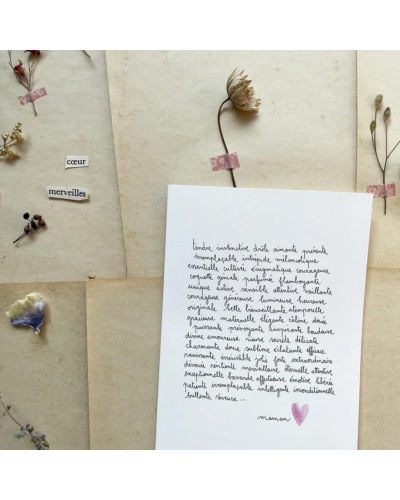 cœur
merveilles
tendre instinctive drôle aimante présente
irremplaçable intrépide mélancolique
essentielle cultivée énigmatique courageuse
coquette géniale parfumée flamboyante
unique active sensible attentive vaillante
courageuse généreuse lumineuse heureuse
originale belle bienveillante intemporelle
gracieuse maternelle élégante câline
puissante prévoyante inspirante
divine amoureuse rieuse secrète délicate
charmante douce sublime éclatante efficace
ravissante irrésistible jolie forte extraordinaire
dévouée merveilleuse éternelle attentive
exceptionnelle bavarde affectueuse émotive libérée
patiente irremplaçable intelligente inconditionnelle
brillante rêveuse ...
maman